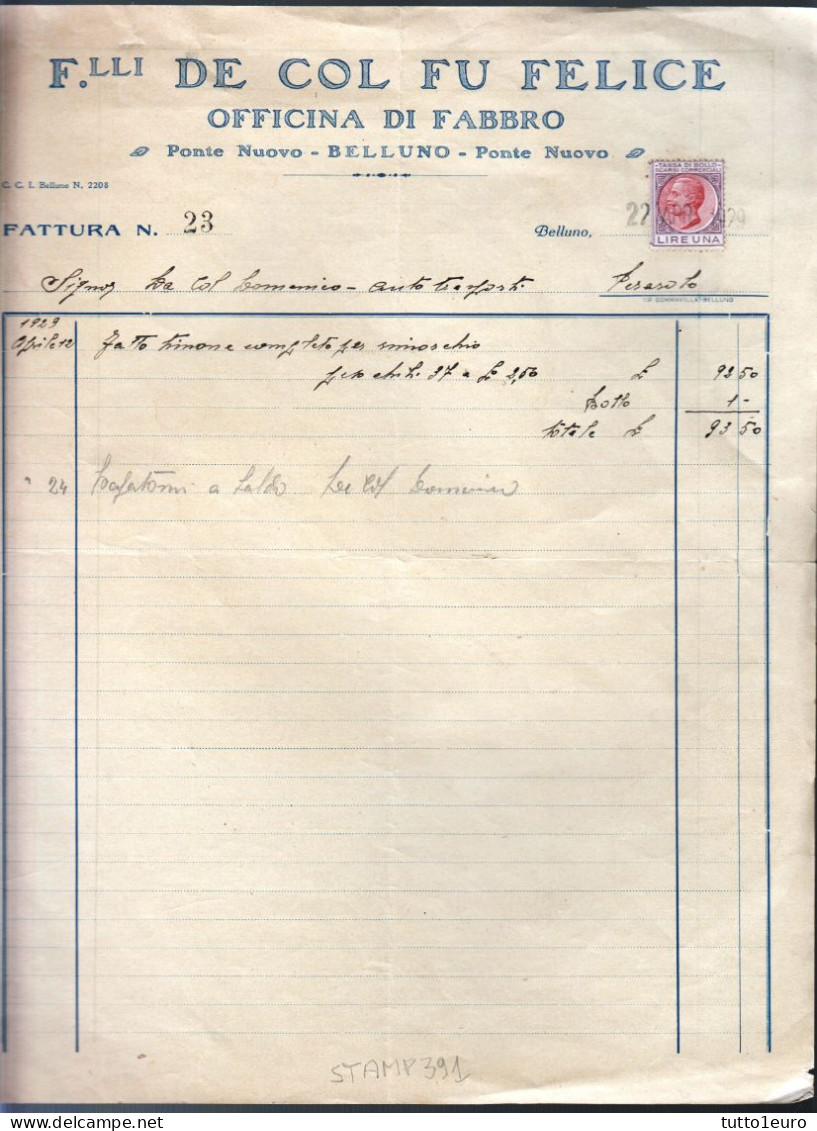 F.LLI DE COL FU FELICE
OFFICINA DI FABBRO
Ponte Nuovo - BELLUNO - Ponte Nuovo
C. C. I. Belluno N. 2208
TASSA DI BOLLO
SCAMBI COMMERCIALI
LIRE UNA
FATTURA N. 23
Belluno, 22 1929
Signor Da Col Domenico - autotrasporti Perarolo
TIP. BELLUNO
1929
Aprile 12 Fatto timone completo per rimorchio
peso chili 37 a £ 2,50 £ 92 50
Bollo 1 -
totale £ 93 50
" 24 a saldo De Col Domenico
STAMP391
tutto1euro